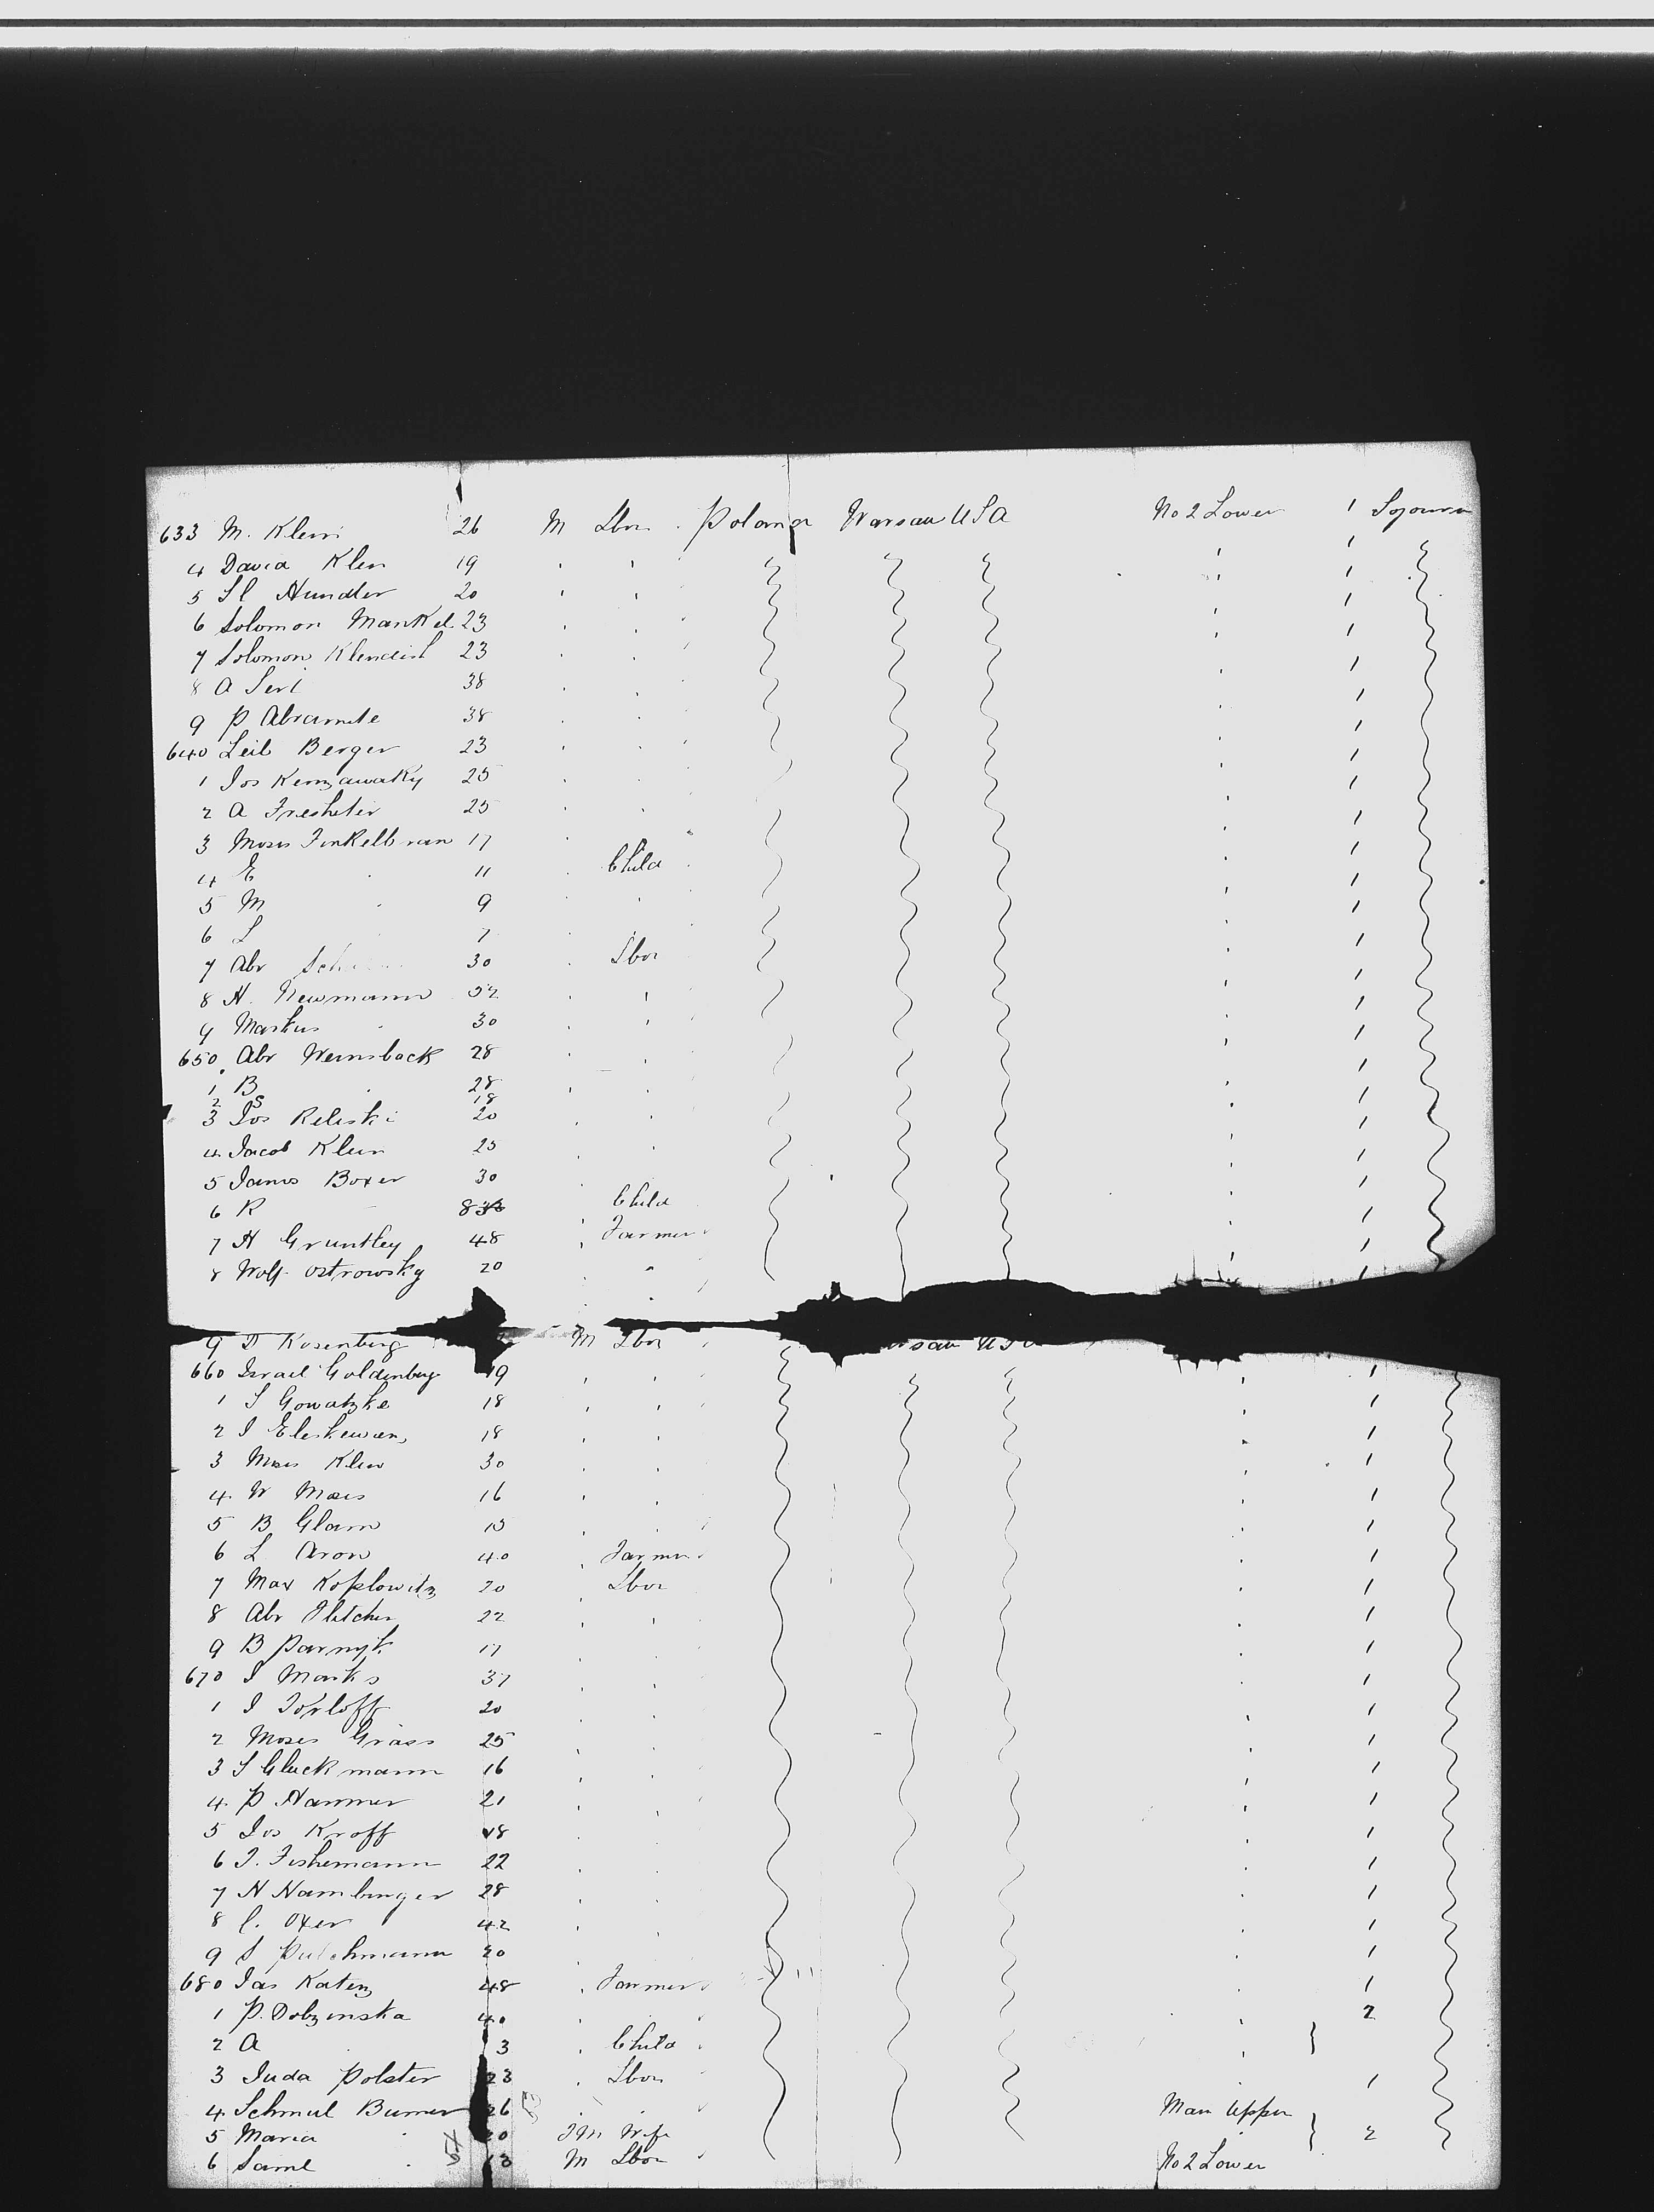 633 M. Klein 26 M Lbor Poland Warsaw USA No 2 Lower 1 Sojourn
4 David Klen 19 1
5 Sl Hundler 20 1
6 Solomon Mankel 23 1
7 Solomon Klendish 23 1
8 A 38 1
9 P Abramite 38 1
640 Leib Berger 23 1
1 Jos 25 1
2 A Freshter 25 1
3 Moses Finkelbran 17 1
4 E 11 Child 1
5 M 9 1
6 L 7 1
7 Abr 30 Lbor 1
8 H. Newmann 1
9 Markus 30 1
650 Abr Weinsback 28 1
1 B 28 1
2 S 18
3 Jos Reliski 20 1
4 Jacob Klein 25 1
5 James Boxer 30 1
6 R 8 Child 1
7 H Gruntley 48 Farmer 1
8 Wolf Ostrowsky 20 1
9 D Rosenberg M Lbor USA
660 Israel Goldenberg 19 1
1 S Gowatzke 18 1
2 I 18 1
3 Moses Klein 30 1
4 W Moses 16 1
5 B Glam 15 1
6 L Aron 40 Farmer 1
7 Max Koplowitz 20 Lbor 1
8 Abr Fletcher 22 1
9 B Parnyk 17 1
670 I Marks 37 1
1 I Torloff 20 1
2 Moses Grass 25 1
3 S Gluckmann 16 1
4 P Hammer 21 1
5 Jos Kroff 18 1
6 J. Fishemann 22 1
7 N Hamburger 28 1
8 C. Oxer 42 1
9 S 20 1
680 Jas Katenz 48 Farmer 1
1 P. Dobzinska 40 2
2 A 3 Child
3 Juda Polster 23 Lbor 1
4 Schmul Bumer 26 Man Upper
5 Maria 20 Wife 2
6 Saml 13 M Lbor No 2 Lower